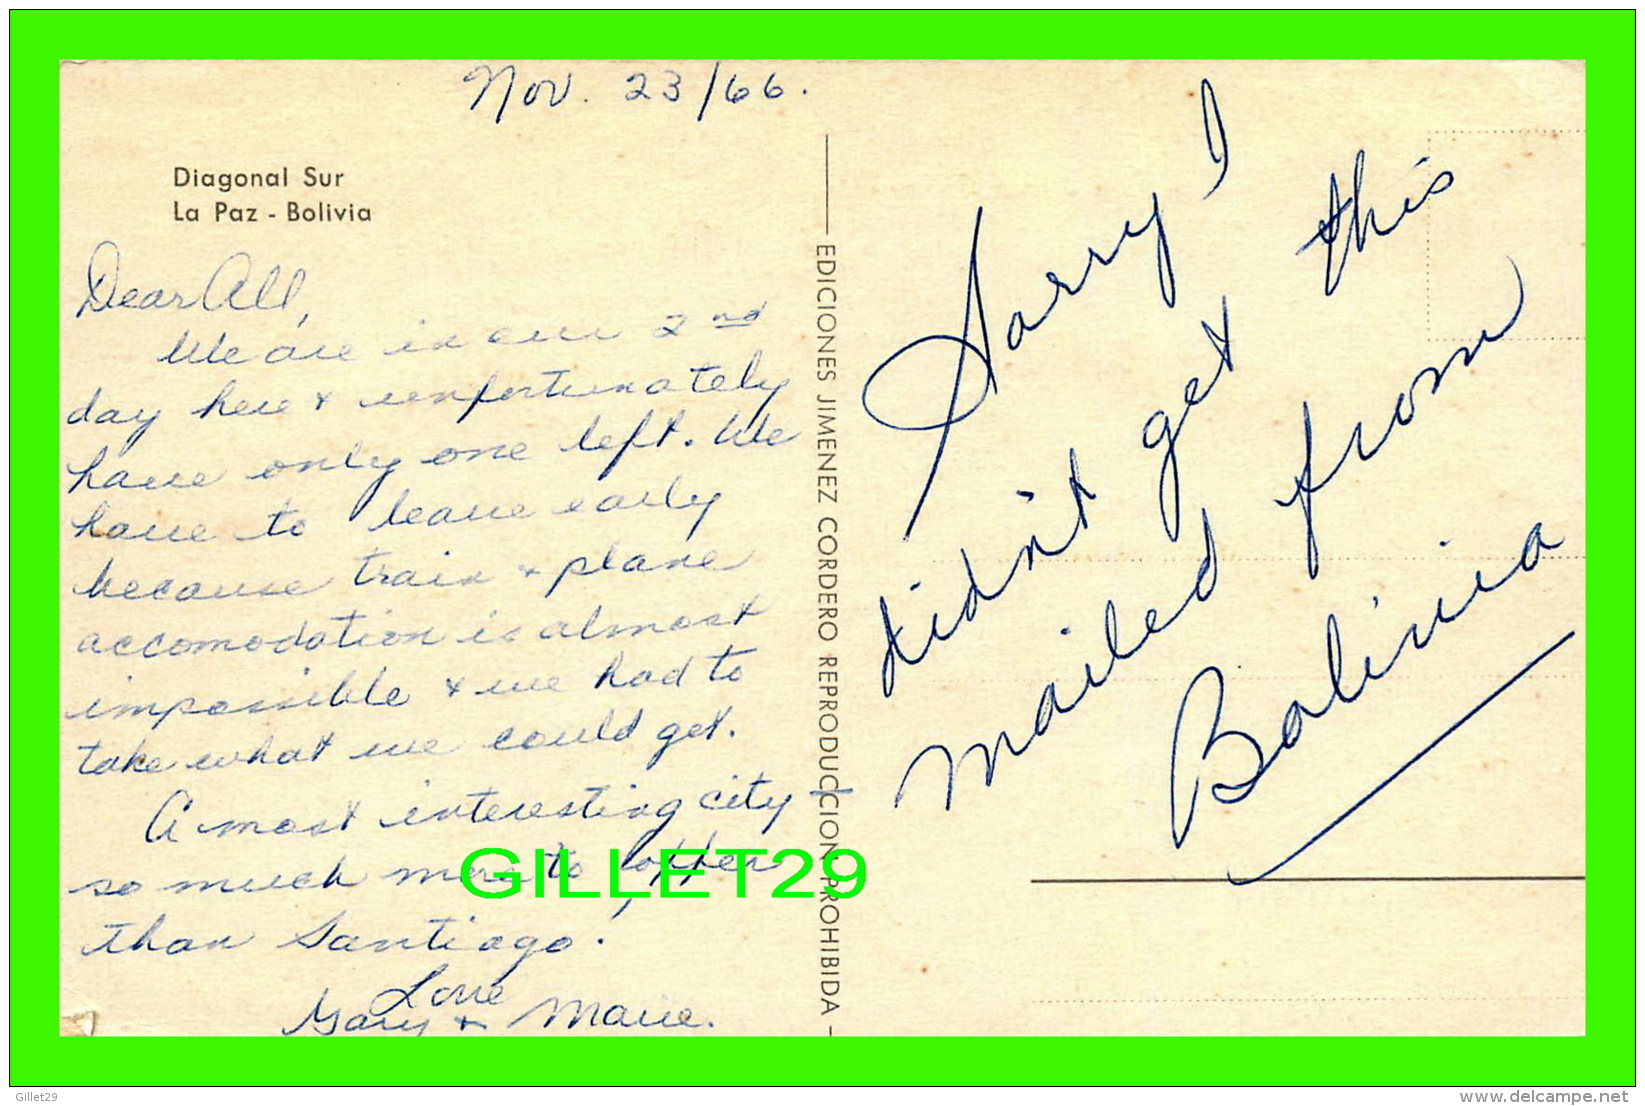 Nov. 23/66.
Diagonal Sur
La Paz - Bolivia
Dear All,
We are in our 2nd
day here & unfortunately
have only one left. We
have to leave early
because train & plane
accomodation is almost
impossible & we had to
take what we could get.
A most interesting city -
so much more to offer
than Santiago.
Love
Gary & Marie.
EDICIONES JIMENEZ CORDERO REPRODUCCION PROHIBIDA
Sorry I
didn't get this
mailed from
Bolivia
GILLET29
Gillet29
delcampe.net